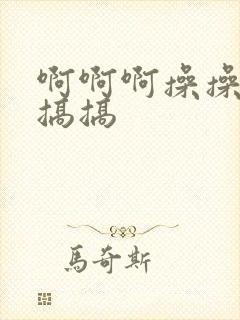 啊啊啊操操
搞搞
馬奇斯